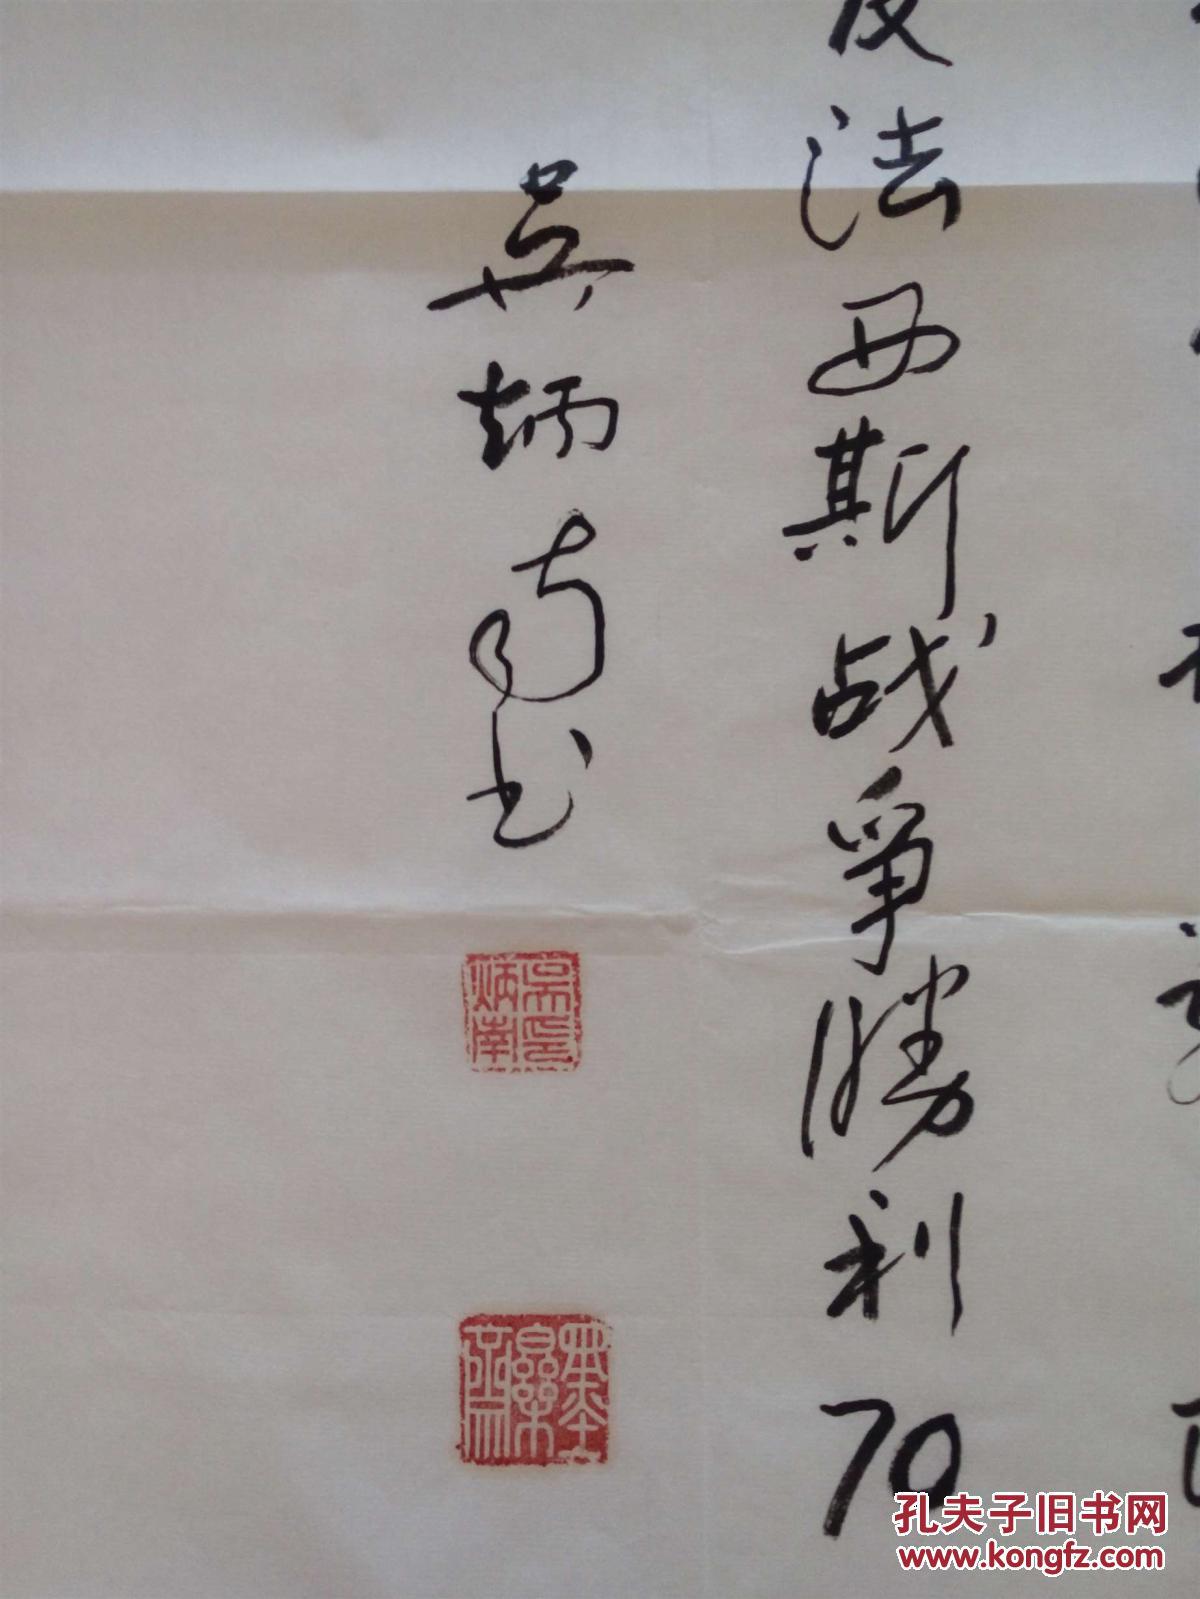 反法西斯战爭勝利70
吴炳南书
吴炳南印
孔夫子旧书网
www.kongfz.com